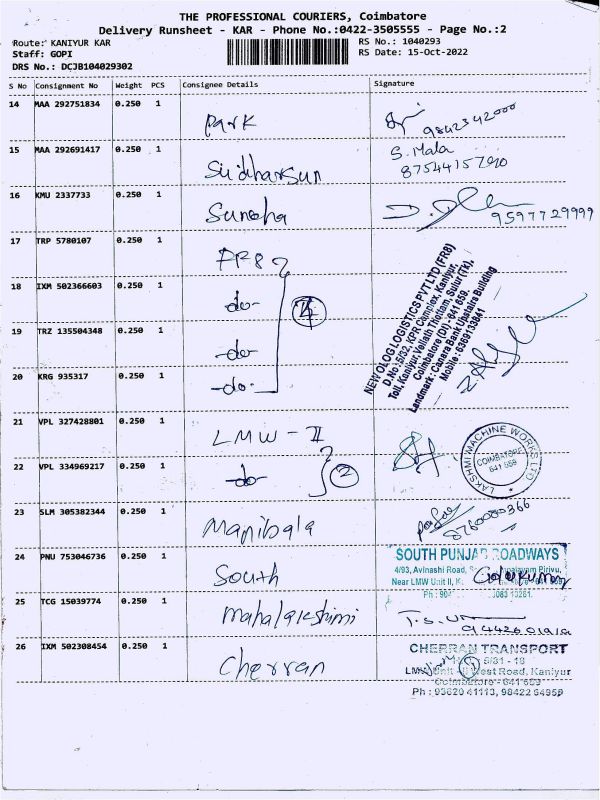 THE PROFESSIONAL COURIERS, Coimbatore
Delivery Runsheet - KAR - Phone No.:0422-3505555 - Page No.:2
Route: KANIYUR KAR
Staff: GOPI
DRS No.: DCJB104029302
RS No.: 1040293
RS Date: 15-Oct-2022
S No Consignment No Weight PCS Consignee Details Signature
14 MAA 292751834 0.250 1 Park 9842342000
15 MAA 292691417 0.250 1 Sudharsun S. Mala
8754415790
16 KMU 2337733 0.250 1 9597729999
17 TRP 5780107 0.250 1 FR8
18 IXM 502366603 0.250 1 -do- 4
19 TRZ 135504348 0.250 1 -do-
20 KRG 935317 0.250 1 -do-
NEW OLOG LOGISTICS PVT LTD (FR8)
D.No: 5/32, KPR Complex, Kaniyur,
Toll, Kaniyur Vellath Thottam, Sulur (Tk),
Coimbatore (Dt) - 641 659.
Landmark : Canara Bank Upstairs Building
Mobile : 6369133841
21 VPL 327428801 0.250 1 LMW - II
22 VPL 334969217 0.250 1 -do- 2
LAKSHMI MACHINE WORKS LTD
COIMBATORE
641 659
23 SLM 305382344 0.250 1 Manibala 8760080366
24 PNU 753046736 0.250 1 South
SOUTH PUNJAB ROADWAYS
4/93, Avinashi Road, Pirivu,
Near LMW Unit II,
Ph :
25 TCG 15039774 0.250 1 Mahalakshimi
26 IXM 502308454 0.250 1 Cherran
CHERRAN TRANSPORT
5/81 - 18
LMW Unit - II West Road, Kaniyur
Coimbatore - 641 659
Ph : 93620 41113, 98422 64959